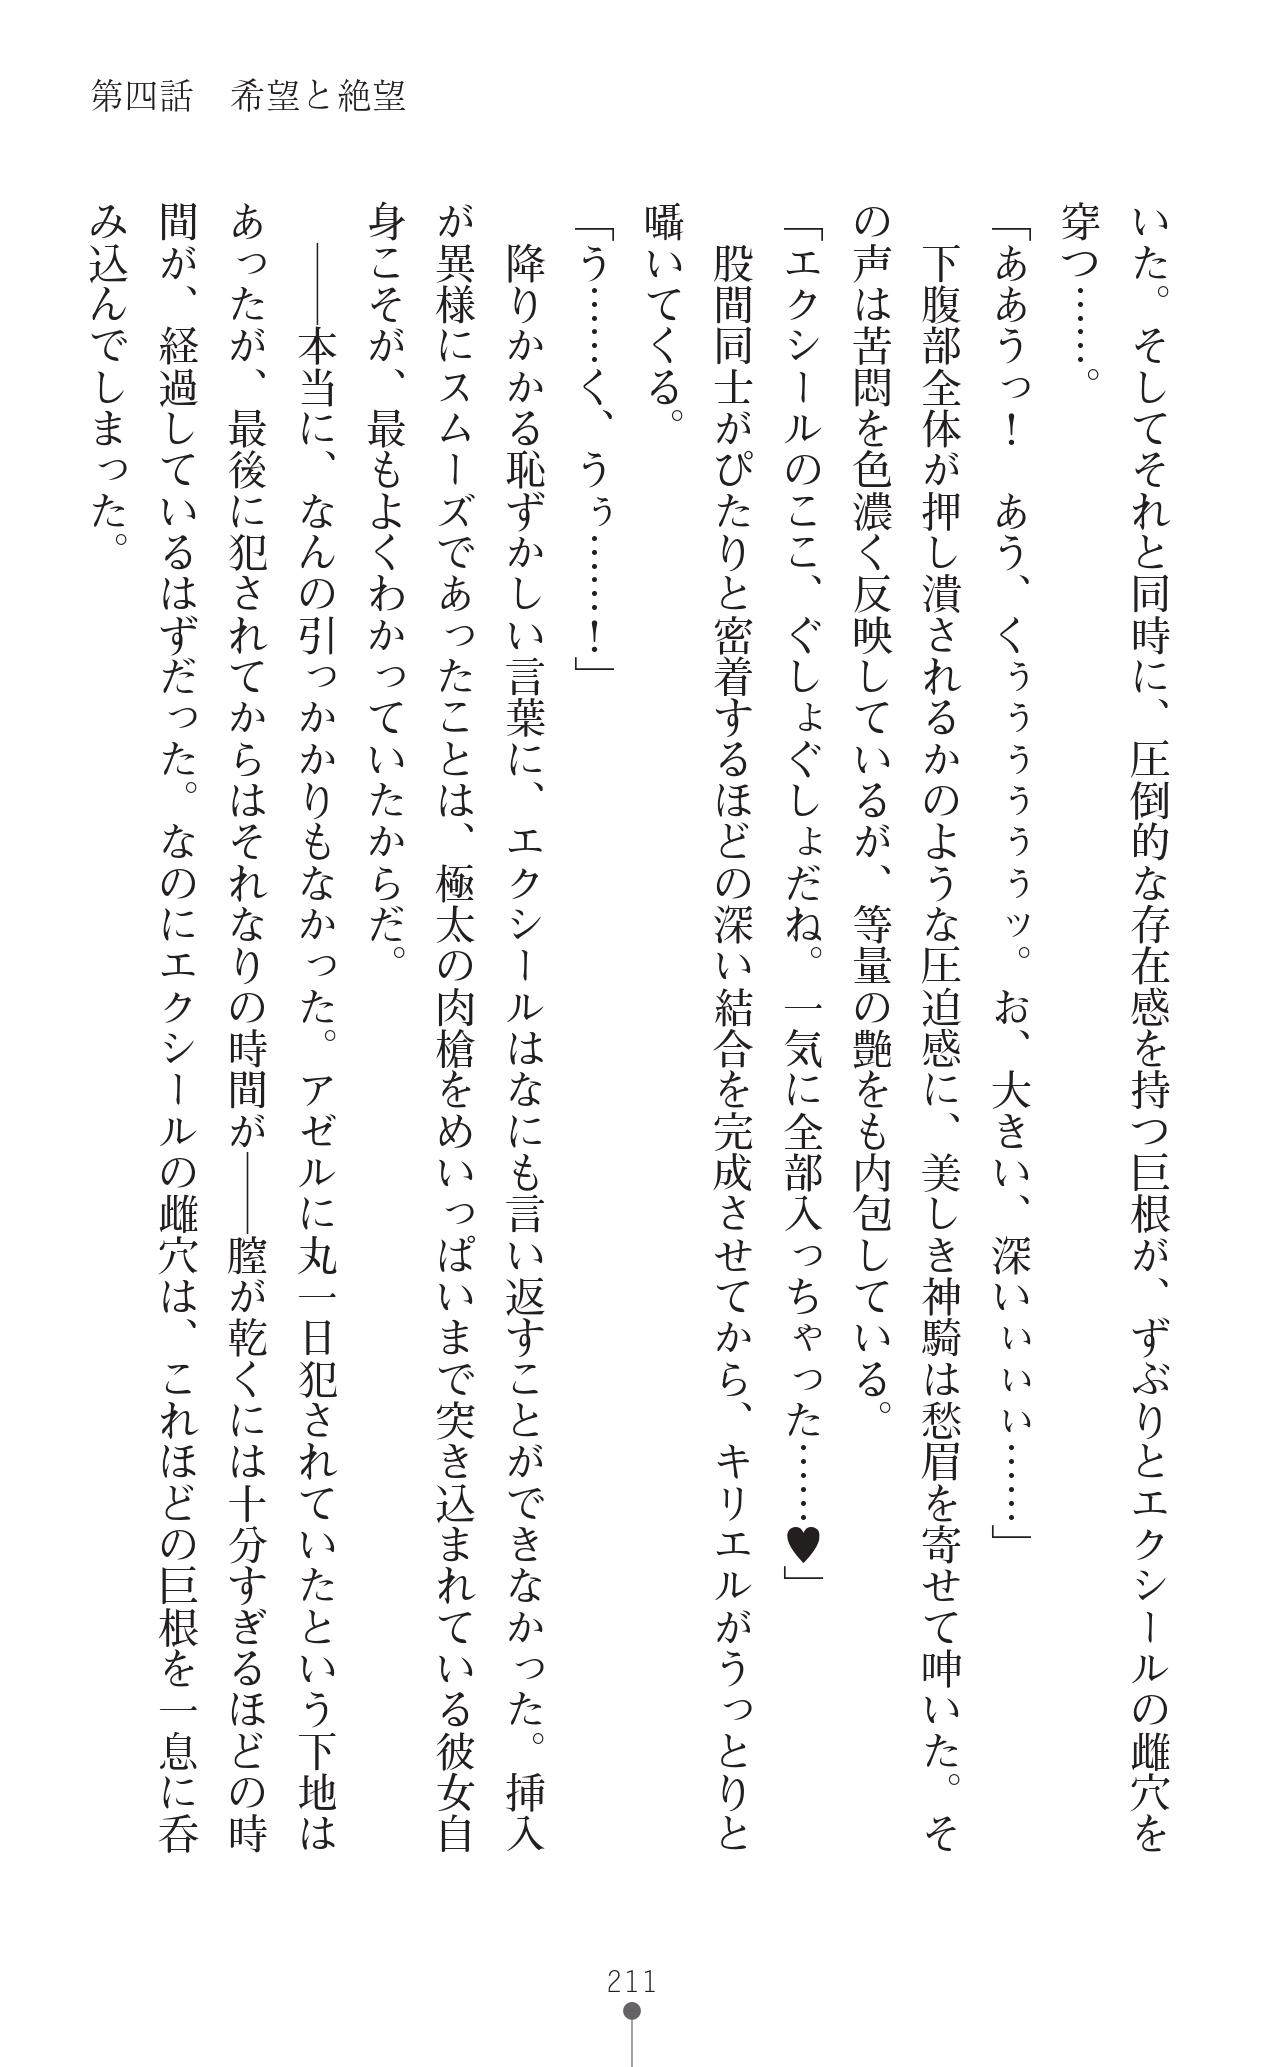 第四話　希望と絶望
いた。そしてそれと同時に、圧倒的な存在感を持つ巨根が、ずぶりとエクシールの雌穴を
穿つ……。
「ああうっ！　あう、くぅぅぅぅぅッ。お、大きい、深いぃぃぃ……」
　下腹部全体が押し潰されるかのような圧迫感に、美しき神騎は愁眉を寄せて呻いた。そ
の声は苦悶を色濃く反映しているが、等量の艶をも内包している。
「エクシールのここ、ぐしょぐしょだね。一気に全部入っちゃった……♥」
　股間同士がぴたりと密着するほどの深い結合を完成させてから、キリエルがうっとりと
囁いてくる。
「う……く、うぅ……！」
　降りかかる恥ずかしい言葉に、エクシールはなにも言い返すことができなかった。挿入
が異様にスムーズであったことは、極太の肉槍をめいっぱいまで突き込まれている彼女自
身こそが、最もよくわかっていたからだ。
　――本当に、なんの引っかかりもなかった。アゼルに丸一日犯されていたという下地は
あったが、最後に犯されてからはそれなりの時間が――膣が乾くには十分すぎるほどの時
間が、経過しているはずだった。なのにエクシールの雌穴は、これほどの巨根を一息に呑
み込んでしまった。
211